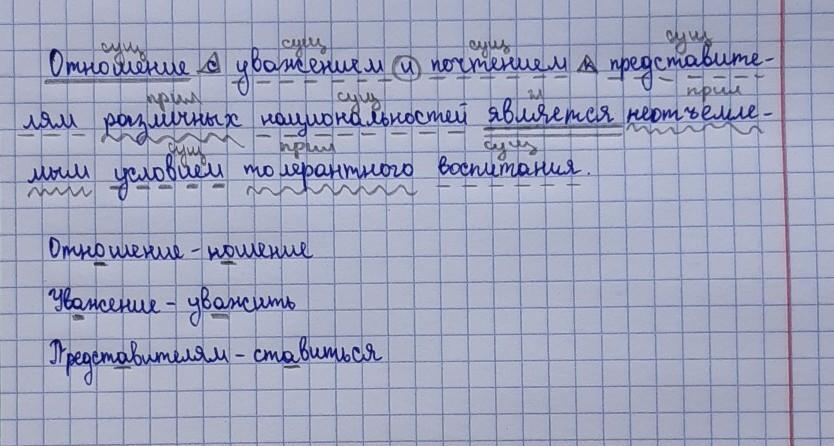 сущ сущ сущ сущ
Отношение с уважением и почтением к представите-
прил сущ гл прил
лям различных национальностей является неотъемле-
сущ прил сущ
мым условием толерантного воспитания.
Отношение - ношение
Уважение - уважить
Представителям - ставиться